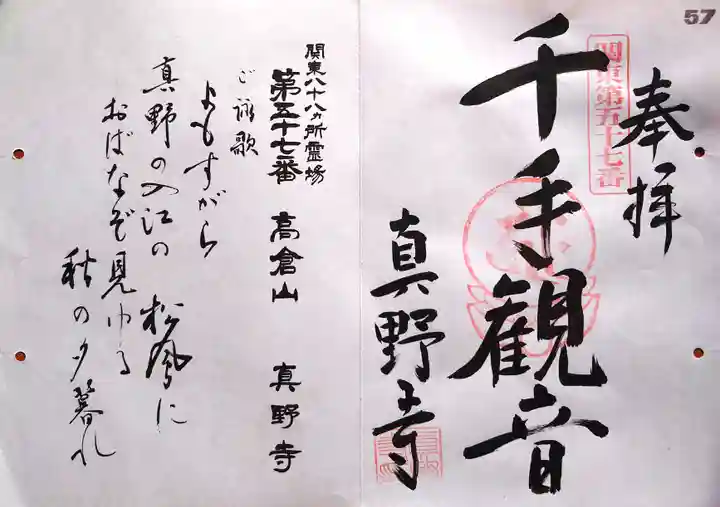 57
奉拝
関東第五十七番
千手観音
真野寺
関東八十八ヵ所霊場
第五十七番 高倉山 真野寺
ご詠歌
よもすがら
真野の入江の 松風に
おばなぞ見ゆる
秋の夕暮れ